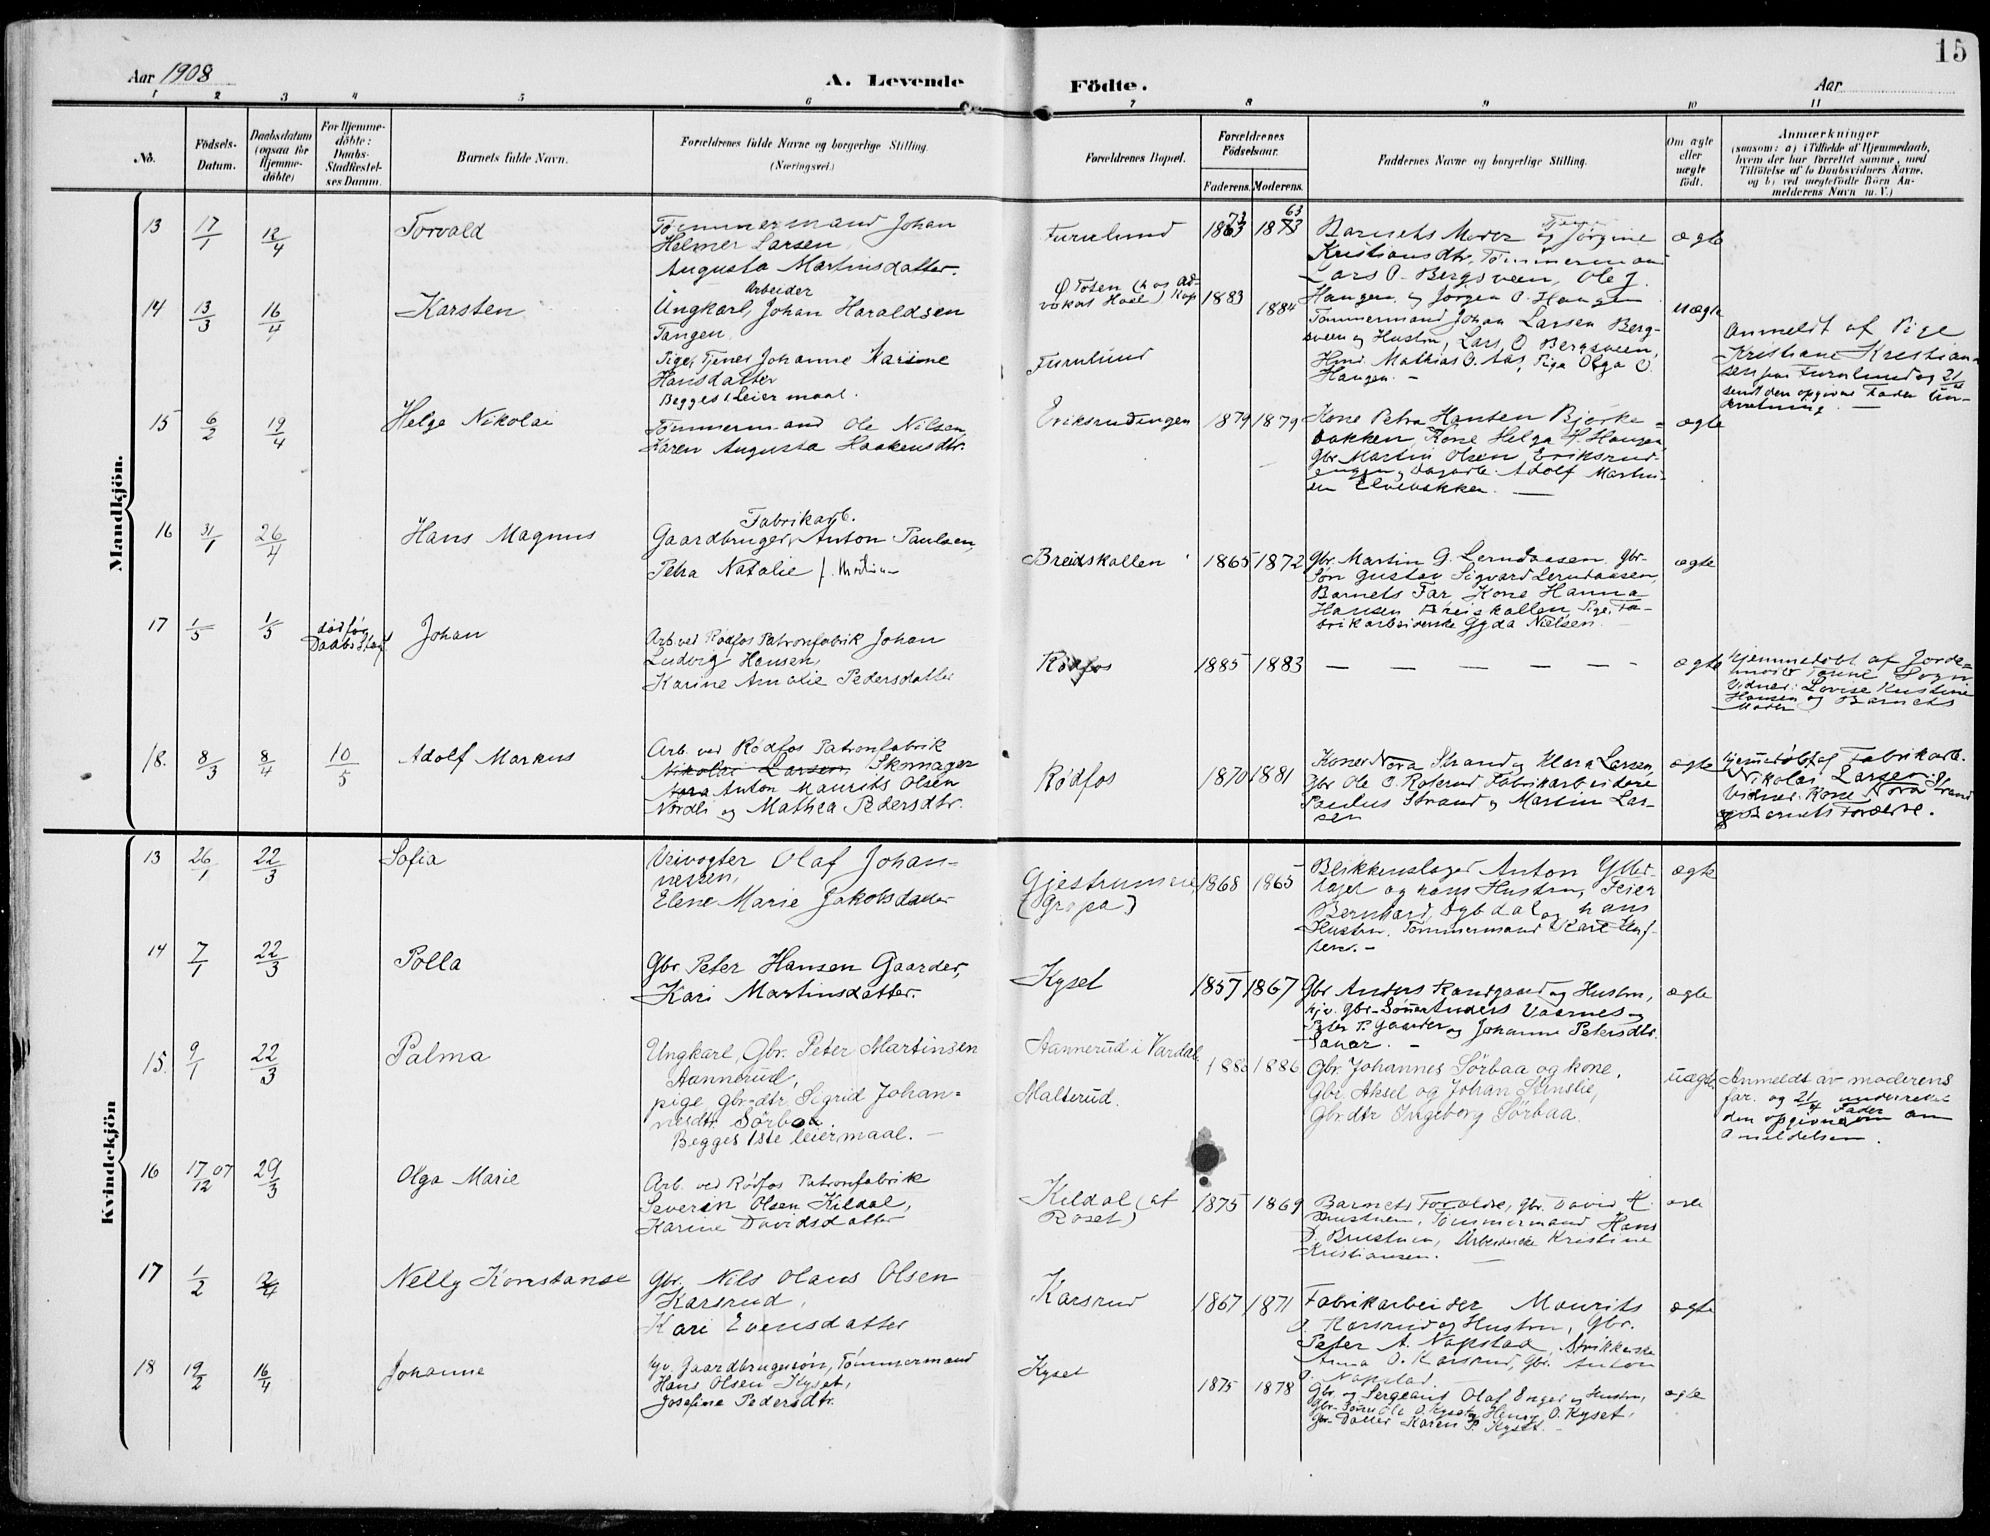 15
Aar 1908
A. Levende
Födte.
Aar
1 2 3 4 5 6 7 8 9 10 11
No.
Födsels-
Datum.
Daabsdatum
(ogsaa for
Hjemme-
döbte)
For Hjemme-
döbte:
Daabs-
Stadfæstel-
ses Datum.
Barnets fulde Navn.
Forældrenes fulde Navne og borgerlige Stilling.
(Næringsvei.)
Forældrenes Bopæl.
Forældrenes
Födselsaar.
Faderens. Moderens.
Faddernes Navne og borgerlige Stilling.
Om ægte
eller
uægte
födt.
Anmærkninger
(saasom: a) i Tilfælde af Hjemmedaab,
hvem der har forrettet samme, med
Tilföielse af to Daabsvidners Navne,
og b) ved uægtefödte Börn An-
melderens Navn m. V.)
Mandkjön.
13 17/1 12/4 Torvald
Tømmermand Johan
Helmer Larsen,
Augusta Martinsdatter.
Furulund
73 63
1863 1873
Barnets Moder og Jørgine
Kristiansdtr, Tømmermand
Lars O. Bergsveen, Ole J.
Haugen og Jørgen O. Haugen
ægte
14 13/3 16/4 Karsten
Arbeider
Ungkarl, Johan Haraldsen
Tangen,
Pige, Tjenes Johanne Karine
Hansdatter
Begges 1 Leiermaal.
Ø Toten (hos Ad-
vokat Hoel) Kap
Furulund
1883 1884
Tømmermand Johan Larsen Berg-
sveen og Hustru, Lars O Bergsveen,
Hmd. Mathias O. Aas, Pige Olga O.
Haugen. -
uægte
Anmeldt af Pige
Kristiane Kristian-
sen paa Furulund og 21/4
sendt den opgivne Fader Un-
derretning. —
15 6/2 19/4 Helge Nikolai
Tømmermand Ole Nilsen,
Karen Augusta Haakensdtr.
Eriksrudengen
1879 1879
Kone Petra Hansen Bjørke-
bakken, Kone Helga H. Haugen
Gbr Martin Olsen Eriksrud-
engen, Dagarb. Adolf Martin-
sen Elvebakken. —
ægte
16 31/1 26/4 Hans Magnus
Fabrikarb.
Gaardbruger, Anton Paulsen,
Petra Natalie f.
Breidskallen
1865 1872
Gbr. Martin G. Lerudaasen, Gbr-
Søn Gustav Sigvard Lerudaasen,
Barnets Far Kone Hanna
Hansen Breiskallen, Pige, Fa-
brikarbeiderske Gyda Nielsen.
ægte
17 1/5 1/5 død før
Daabs Stadf
Johan
Arb ved Rødfos Patronfabrik Johan
Ludvig Hansen,
Karine Amalie Pedersdatter
Rødfos
1885 1883
— — — — — —
ægte
Hjemmedøbt af Jorde-
moder
Vidner: Lovise Kristine
Hansen og Barnets
Moder
18. 8/3 8/4 10/5 Adolf Markus
Arb. ved Rødfos Patronfabrik
Nikolai Larsen, Skomager
Nora Anton Maurits Olsen
Nordli og Mathea Pedersdtr.
Rødfos
1870 1881
Koner Nora Strand og Klara Larsen
Gbr Ole O. Roterud Fabrikarbeidere
Paulus Strand og Martin Lar-
sen
ægte
Hjemmedøbt af Fabrikarb.
Nikolai Larsen
Vidner: Kone Nora Strand
og Barnets Forældre.
Kvindekjön
13 26/1 22/3 Sofia
Veivogter Olaf Johan-
nessen,
Elene Marie Jakobsdatter
Gjestrumeie
(Gropa)
1868 1865
Blikkenslager Anton Ylter-
laget og hans Hustru, Feier
Bernhard Dybdal og hans
Hustru, Tømmermand Karl
ægte
14 7/1 22/3 Polla
Gbr Peter Hansen Gaarder,
Kari Martinsdatter.
Kyset
1857 1867
Gbr Anders Randgaard og Hustru,
hjv. Gbr-Sønner Anders Vaarnes og
Peter P. Gaarder og Johanne Petersdtr.
ægte
15. 9/1 22/3 Palma
Ungkarl, Gbr. Peter Martinsen
Aannerud,
pige, gbr-dtr. Sigrid Johan-
nesdtr Sörbaa.
Begges 1ste leiermaal. —
Aannerud i Vardal
Malterud.
1886 1886
Gbr. Johannes Sörbaa og kone,
Gbr. Aksel og Johan Stenslie,
Gbr.dtr Ingeborg Sørbaa.
uægte
Anmeldt av moderens
far. og 21/4 underrettet
den opgivne Fader om
anmeldelsen.
16 17/12 07 29/3 Olga Marie
Arb. ved Rødfos Patronfabrik
Severin Olsen Kildal,
Karine Davidsdatter
Kildal (af
Roset)
1875 1869
Barnets Forældre, Gbr. David H.
Brustuen, Tømmermand Hans
D. Brustuen, Arbeiderske Kristine
Kristiansen.
17 1/2 Nelly Konstanse
Gbr. Nils Olaus Olsen
Karsrud,
Kari Evensdatter
Karsrud
1867 1871
Fabrikarbeider Maurits
O. Karsrud og Hustru, Gbr.
Peter A. Nøkstad, Strikkerske
Anna O. Karsrud, Gbr. Anton
ægte
18 19/2 16/4 Johanne
hjv. Gaardbrugersøn, Tømmermand
Hans Olsen Kyset,
Josefine Pedersdtr.
Kyset
1875 1878
Gbr. og Sergeant Olaf Enger og Hustru,
Gbr-Sønn Ole O. Kyset, Henry O. Kyset,
Gbr-Datter Karen P. Kyset. -
ægte